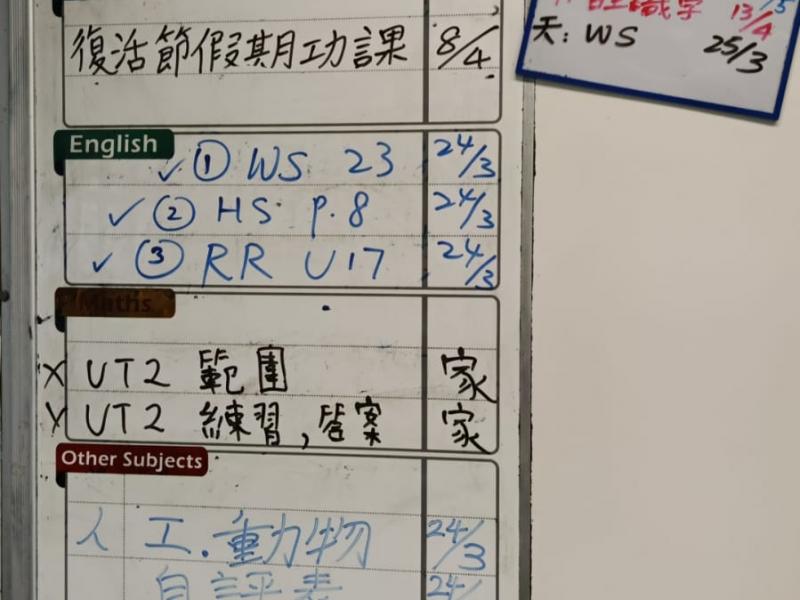 復活節假期功課 8/4
English
✓ ① WS 23 24/3
✓ ② HS p.8 24/3
✓ ③ RR U17 24/3
Maths
X UT2 範圍 家
X UT2 練習,答案 家
Other Subjects
人 工.動力物 24/3
自評表 24/
識字 13/4
天: WS 25/3